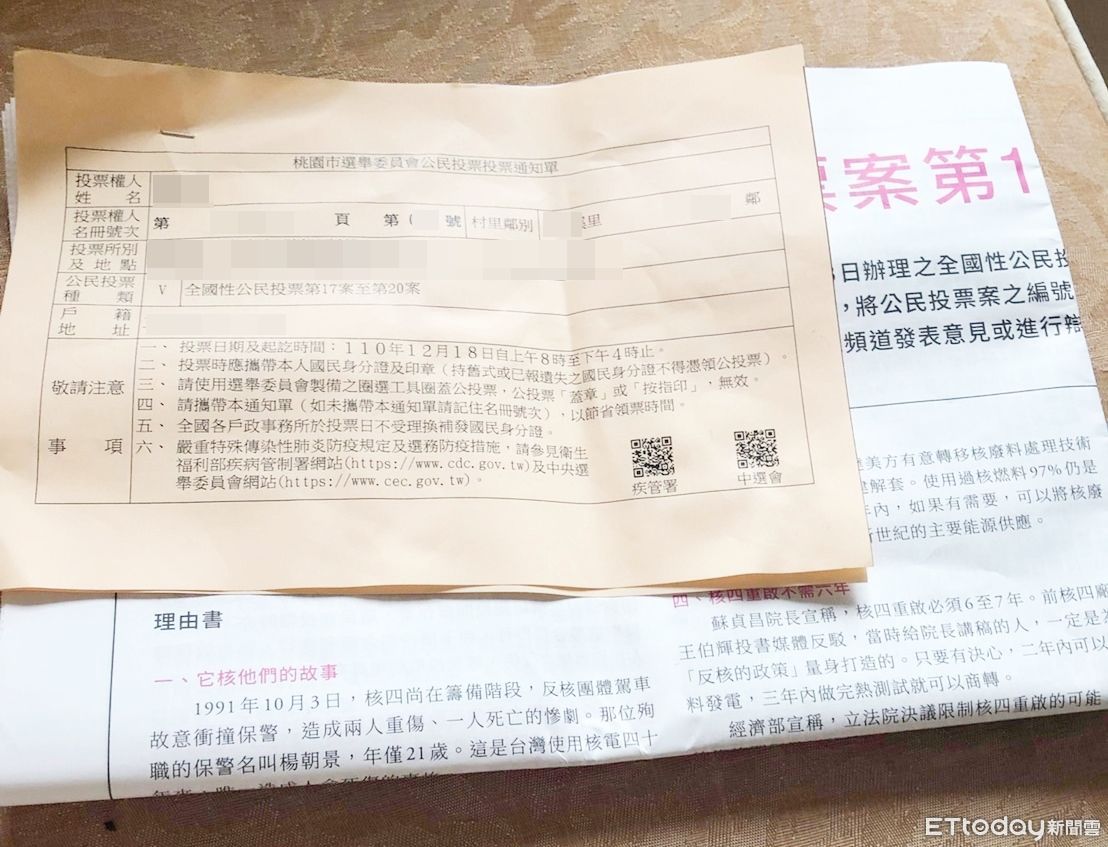 桃園市選舉委員會公民投票投票通知單
投票權人
姓名
投票權人
名冊號次
第 頁 第 號 村里鄰別 里 鄰
投票所別
及地點
公民投票
種類
V 全國性公民投票第17案至第20案
戶籍
地址
敬請注意
事項
一、投票日期及起訖時間：110年12月18日自上午8時至下午4時止。
二、投票時應攜帶本人國民身分證及印章（持舊式或已報遺失之國民身分證不得憑領公投票）。
三、請使用選舉委員會製備之圈選工具圈蓋公投票，公投票「蓋章」或「按指印」，無效。
四、請攜帶本通知單（如未攜帶本通知單請記住名冊號次），以節省領票時間。
五、全國各戶政事務所於投票日不受理換補發國民身分證。
六、嚴重特殊傳染性肺炎防疫規定及選務防疫措施，請參見衛生
福利部疾病管制署網站(https://www.cdc.gov.tw)及中央選
舉委員會網站(https://www.cec.gov.tw)。
疾管署
中選會
票案第1
日辦理之全國性公民投
，將公民投票案之編號
頻道發表意見或進行辯
美方有意轉移核廢料處理技術
解套。使用過核燃料97%仍是
年內，如果有需要，可以將核廢
新世紀的主要能源供應。
四、核四重啟不需六年
蘇貞昌院長宣稱，核四重啟必須6至7年。前核四廠
王伯輝投書媒體反駁，當時給院長講稿的人，一定是為
「反核的政策」量身打造的。只要有決心，二年內可以
料發電，三年內做完熱測試就可以商轉。
經濟部宣稱，立法院決議限制核四重啟的可能
理由書
一、它核他們的故事
1991年10月3日，核四尚在籌備階段，反核團體駕車
故意衝撞保警，造成兩人重傷、一人死亡的慘劇。那位殉
職的保警名叫楊朝景，年僅21歲。這是台灣使用核電四十
ETtoday新聞雲